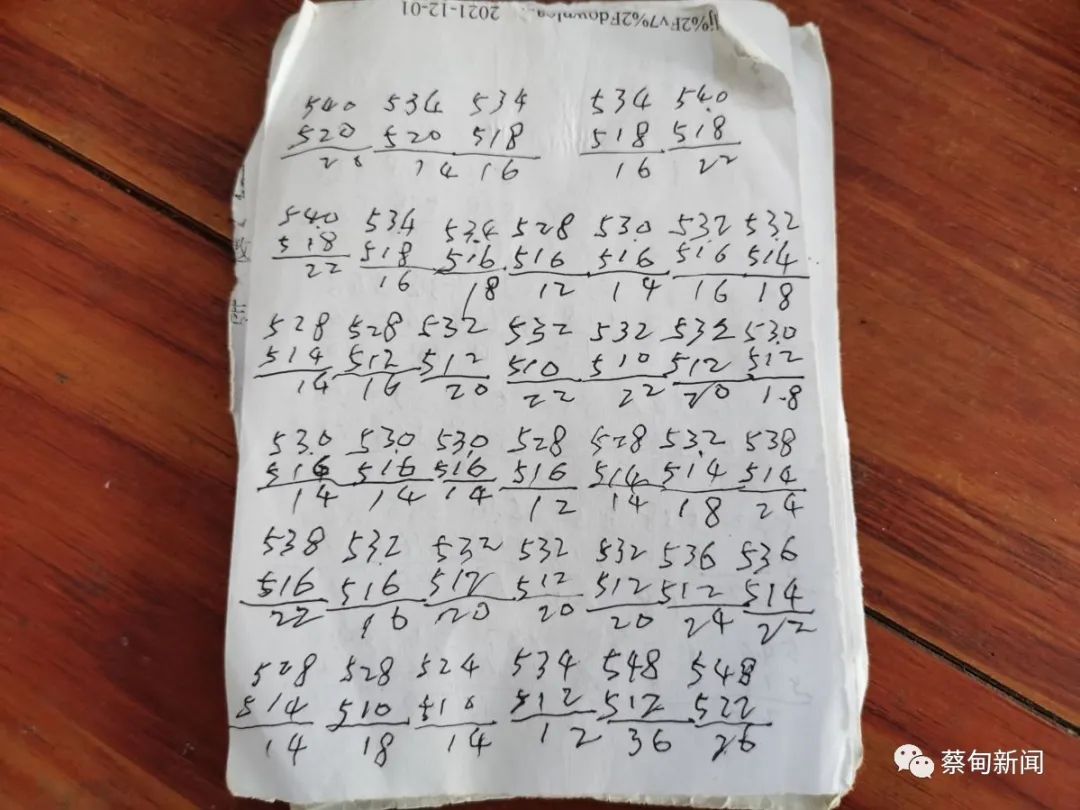 j%2Fv7%2Fdownloa... 2021-12-01
540 534 534 534 540
520 520 518 518 518
20 14 16 16 22
540 534 534 528 530 532 532
518 518 516 516 516 516 514
22 16 18 12 14 16 18
528 528 532 532 532 532 530
514 512 512 510 510 512 512
14 16 20 22 22 20 18
530 530 530 528 528 532 538
516 516 516 516 514 514 514
14 14 14 12 14 18 24
538 532 532 532 532 536 536
516 516 512 512 512 512 514
22 16 20 20 20 24 22
528 528 524 534 548 548
514 510 510 512 512 522
14 18 14 12 36 26
志
蔡甸新闻